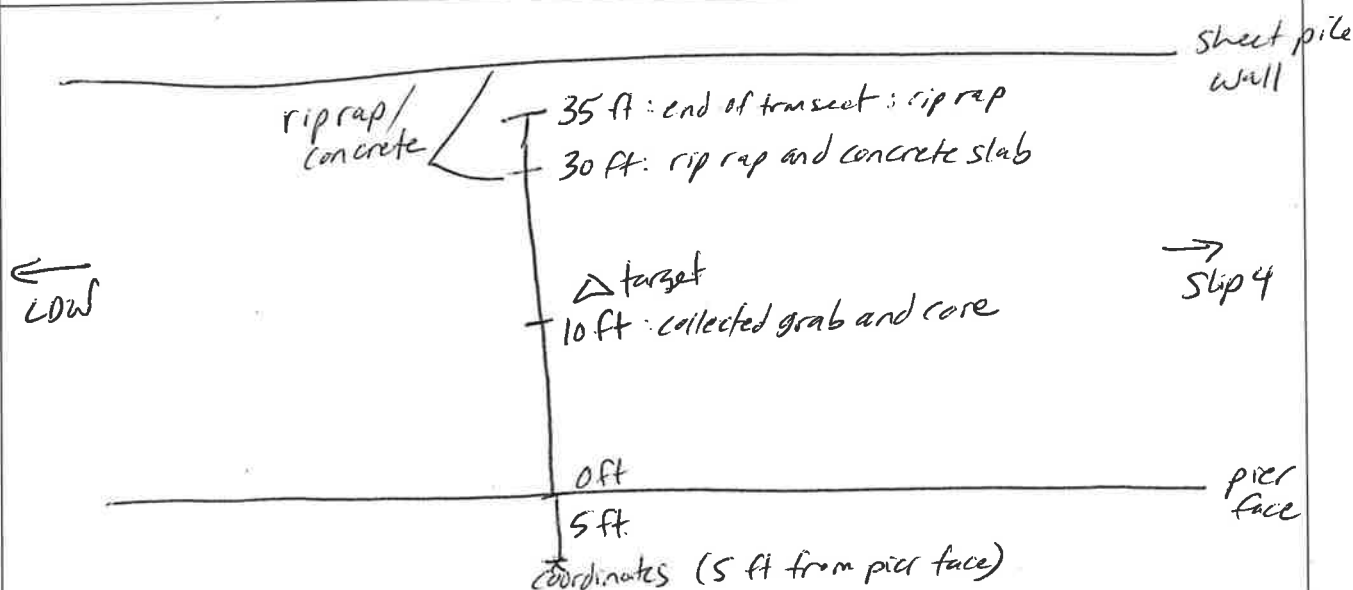 sheet pile
wall
rip rap/
concrete
35 ft: end of transect: rip rap
30 ft: rip rap and concrete slab
← LDW
→ Slip 4
△ target
10 ft: collected grab and core
0 ft
pier
face
5 ft.
coordinates (5 ft from pier face)